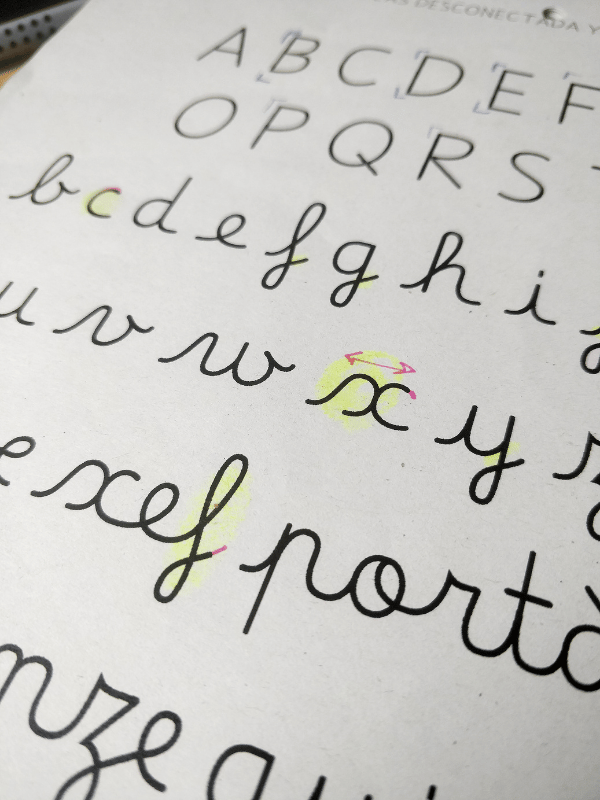 DESCONECTADA Y
A B C D E F
O P Q R S
b c d e f g h i
u v w x y z
e xef portà
nze